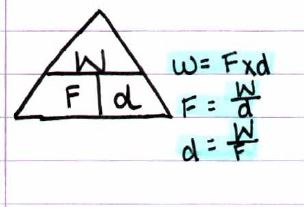 W
F d
W = F x d
F = W/d
d = W/F